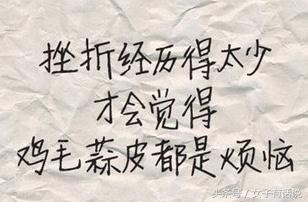 挫折经历得太少
才会觉得
鸡毛蒜皮都是烦恼
头条号/女子有话说